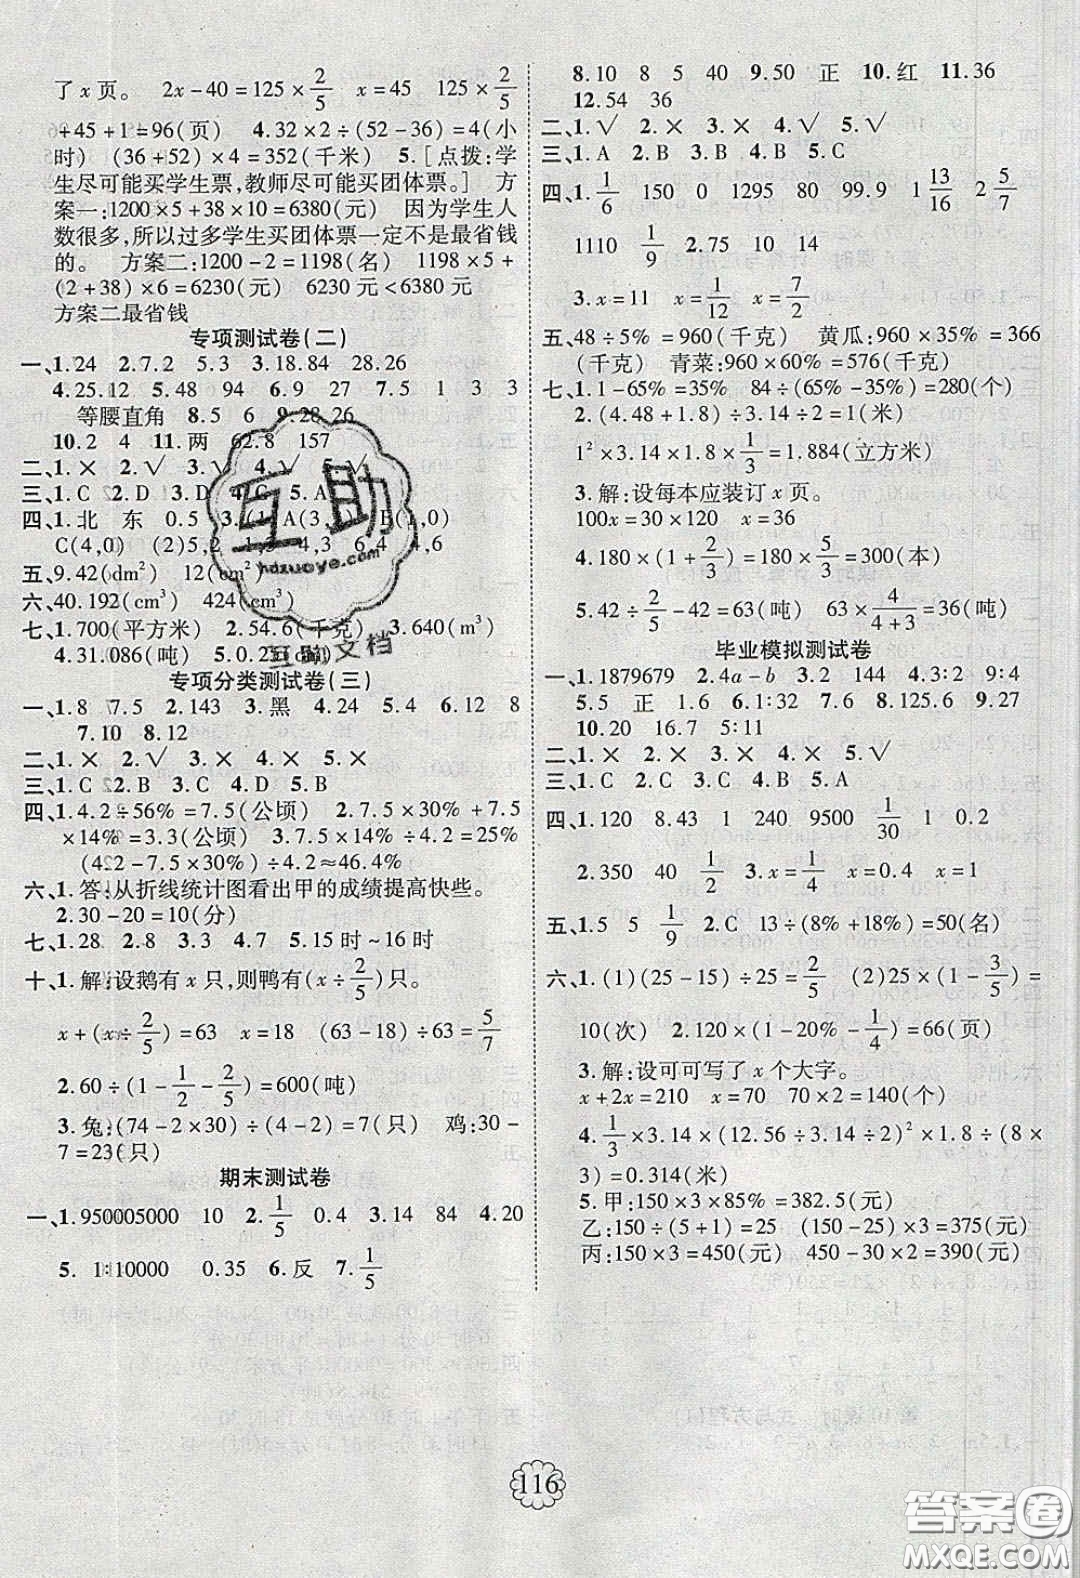 了x页。 2x-40=125×2/5 x=45 125×2/5
+45+1=96(页) 4.32×2÷(52-36)=4(小
时) (36+52)×4=352(千米) 5.[点拨:学
生尽可能买学生票,教师尽可能买团体票。] 方
案一:1200×5+38×10=6380(元) 因为学生人
数很多,所以过多学生买团体票一定不是最省钱
的。 方案二:1200-2=1198(名) 1198×5+
(2+38)×6=6230(元) 6230元<6380元
方案二最省钱
专项测试卷(二)
一、1.24 2.7.2 5.3 3.18.84 28.26
4.25.12 5.48 94 6.9 27 7.5 1 3 3
等腰直角 8.5 6 9.28.26
10.2 4 11.两 62.8 157
二、1.× 2.√ 3.√ 4.√ 5.√
三、1.C 2.D 3.D 4.C 5.A
四、1.北 东 0.5 3.(1)A(3, ) B(1,0)
C(4,0) (2)5,2 1,3 4,5 4,6
五、9.42(dm²) 12(cm²)
六、40.192(cm³) 424(cm³)
七、1.700(平方米) 2.54.6(千克) 3.640(m³)
4.31.086(吨) 5.0.25(dm)
专项分类测试卷(三)
一、1.8 7.5 2.143 3.黑 4.24 5.4 6.12 8
7.10 8.12
二、1.× 2.√ 3.× 4.× 5.×
三、1.C 2.C 3.C 4.D 5.B
四、1.4.2÷56%=7.5(公顷) 2.7.5×30%+7.5
×14%=3.3(公顷) 3.7.5×14%÷4.2=25%
(4.2-7.5×30%)÷4.2≈46.4%
六、1.答:从折线统计图看出甲的成绩提高快些。
2.30-20=10(分)
七、1.28 2.8 3.3 4.7 5.15时~16时
十、1.解:设鹅有x只,则鸭有(x÷2/5)只。
x+(x÷2/5)=63 x=18 (63-18)÷63=5/7
2.60÷(1-1/2-2/5)=600(吨)
3.兔:(74-2×30)÷(4-2)=7(只) 鸡:30-
7=23(只)
期末测试卷
一、1.950005000 10 2.1/5 0.4 3.14 84 4.20
5. 1:10000 0.35 6.反 7.1/5
8.10 8 5 40 9.50 正 10.红 11.36
12.54 36
二、1.√ 2.× 3.× 4.× 5.√
三、1.A 2.B 3.B 4.B 5.C
四、1.1/6 150 0 1295 80 99.9 1 13/16 2 5/7
1110 1/9 2.75 10 14
3.x=11 x=1/12 x=7/2
五、48÷5%=960(千克) 黄瓜:960×5%=366
(千克) 青菜:960×60%=576(千克)
七、1.1-65%=35% 84÷(65%-35%)=280(个)
2.(4.48+1.8)÷3.14÷2=1(米)
1²×3.14×1.8×1/3=1.884(立方米)
3.解:设每本应装订x页。
100x=30×120 x=36
4.180×(1+2/3)=180×5/3=300(本)
5.42÷2/5-42=63(吨) 63×4/(4+3)=36(吨)
毕业模拟测试卷
一、1.1879679 2.4a-b 3.2 144 4.3:2 9:4
5.5 正 1.6 6.1:32 7.2 8.125.6 9.27
10.20 16.7 5:11
二、1.× 2.× 3.× 4.× 5.√
三、1.C 2.C 3.C 4.B 5.A
四、1.120 8.43 1 240 9500 1/30 1 0.2
2.350 40 1/2 3.x=1/2 x=0.4 x=1
五、1.5 5 1/9 2.C 13÷(8%+18%)=50(名)
六、1.(1)(25-15)÷25=2/5 (2)25×(1-3/5)=
10(次) 2.120×(1-20%-1/4)=66(页)
3.解:设可可写了x个大字。
x+2x=210 x=70 70×2=140(个)
4.1/3×3.14×(12.56÷3.14÷2)²×1.8÷(8×
3)=0.314(米)
5.甲:150×3×85%=382.5(元)
乙:150÷(5+1)=25 (150-25)×3=375(元)
丙:150×3=450(元) 450-30×2=390(元)
互助
hdzuoye.com
互助文档
116
答案圈
MXQE.COM